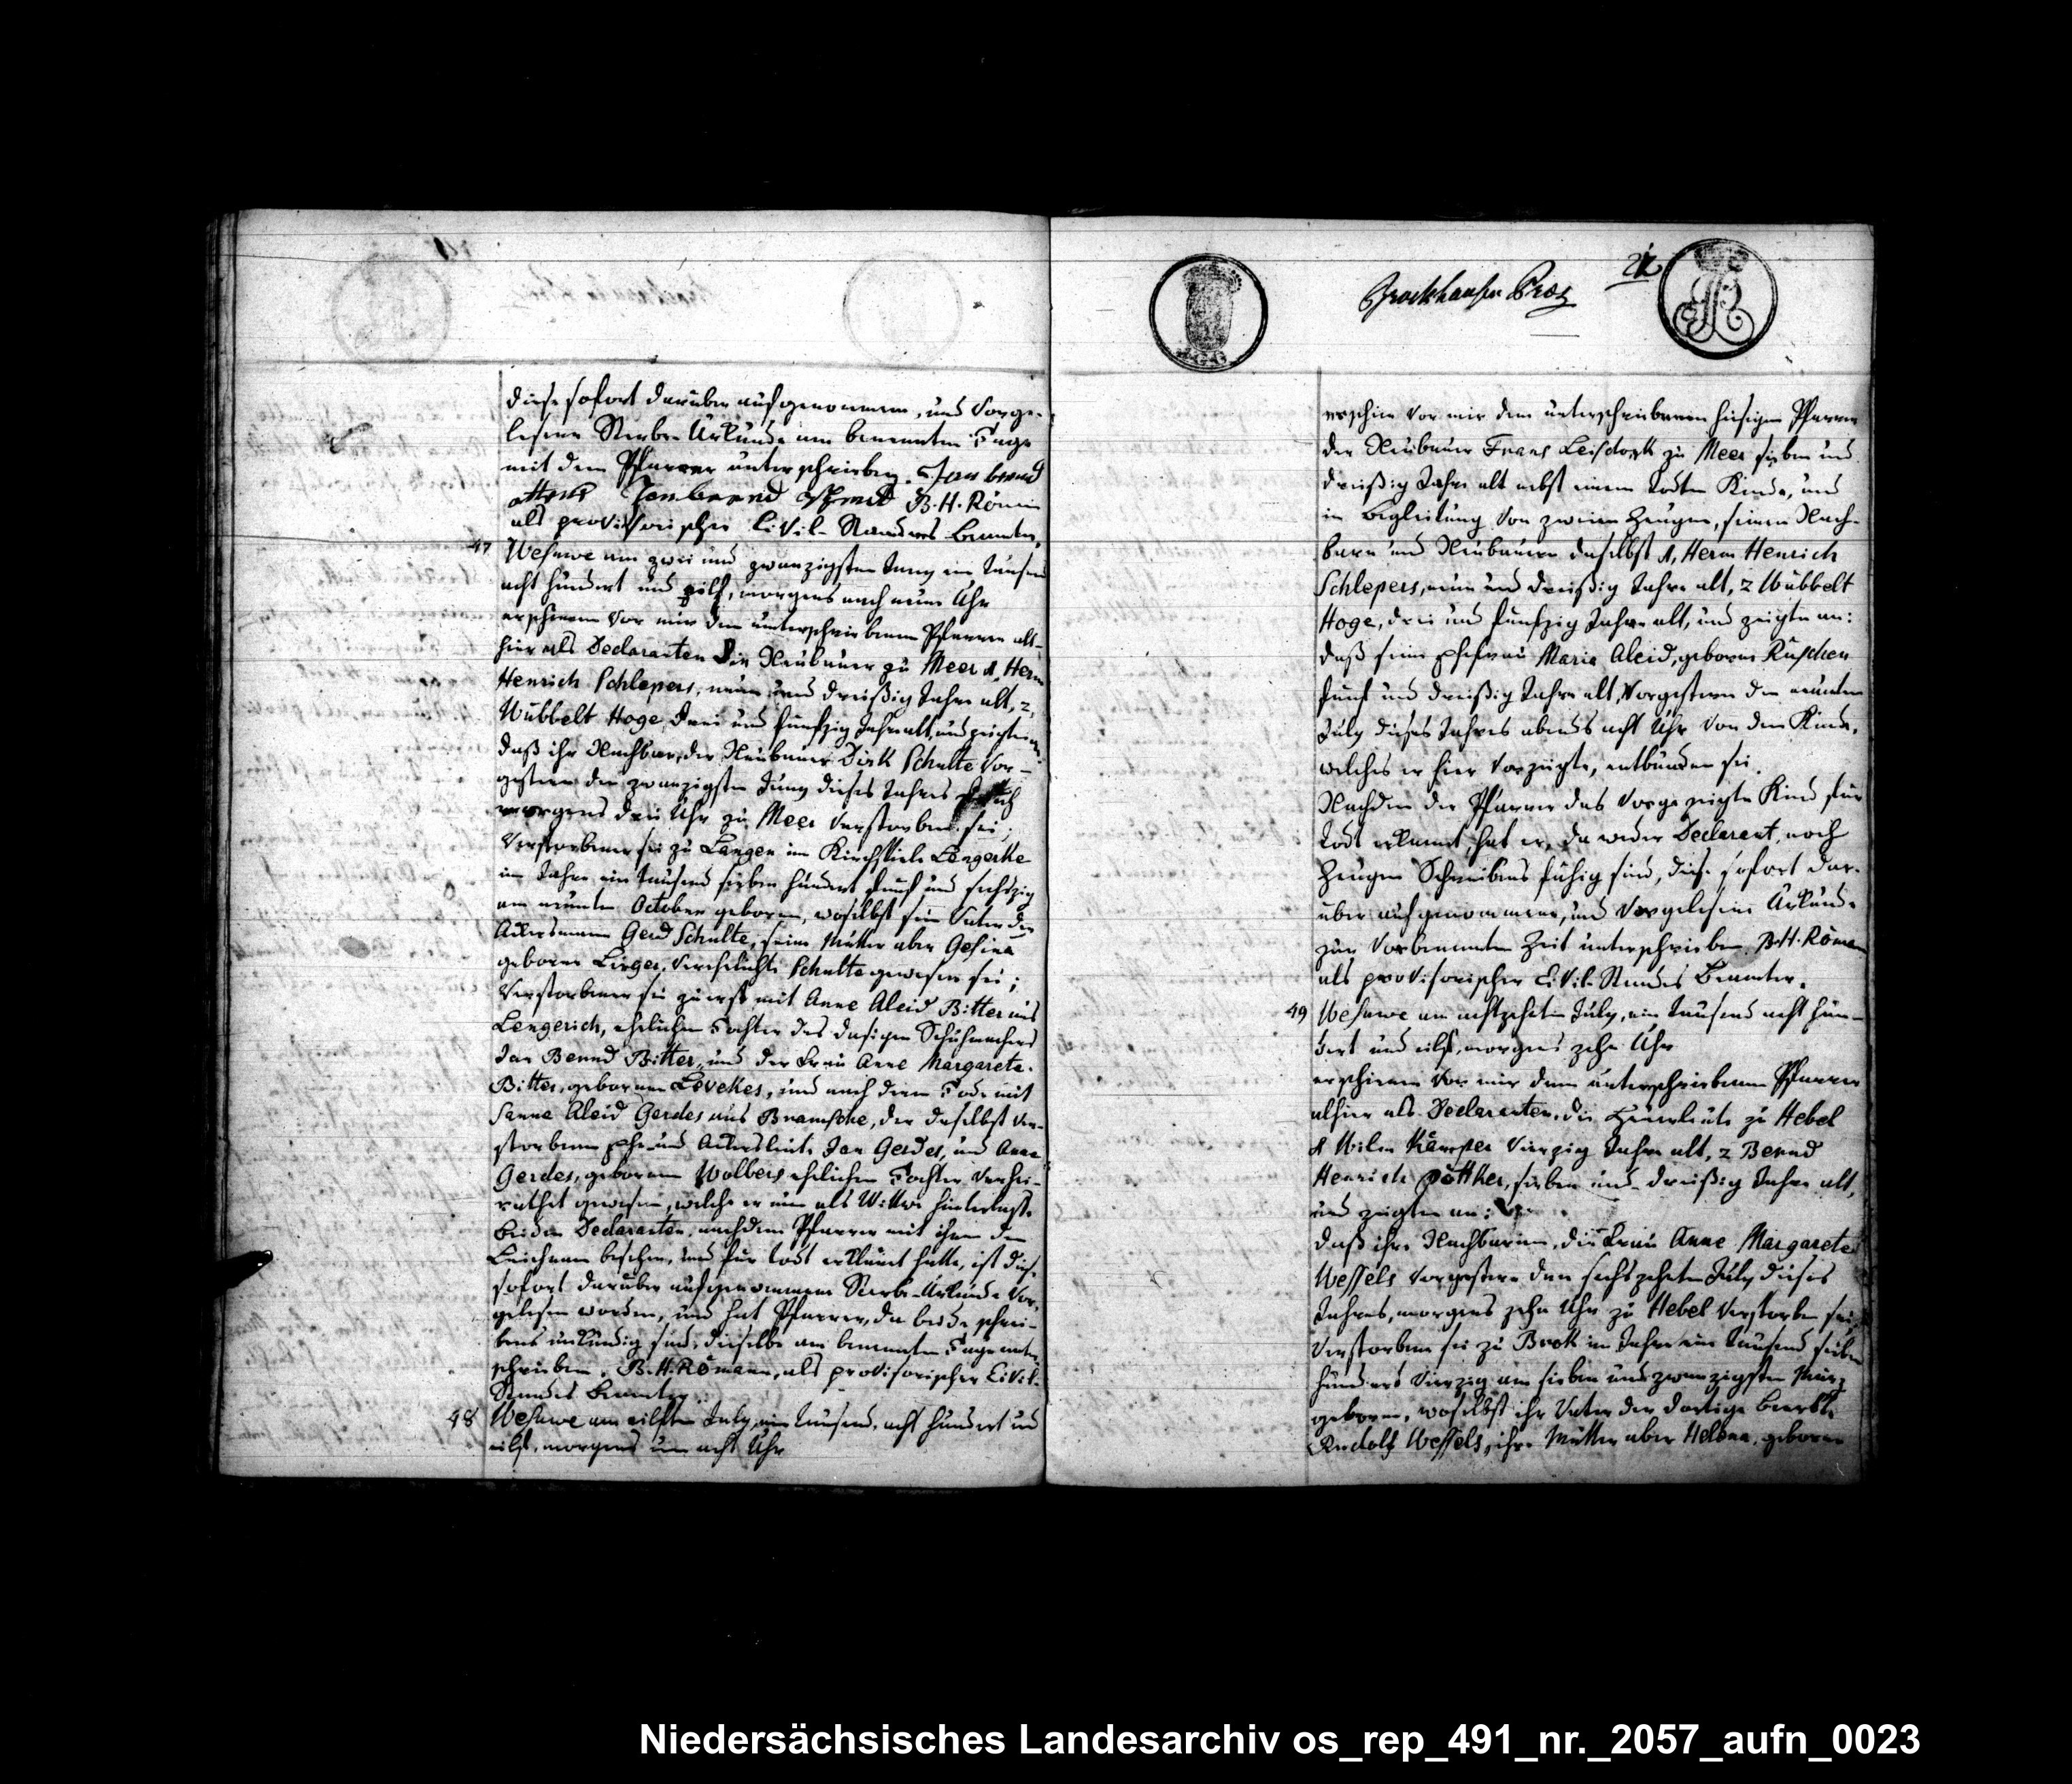 diese sofort darüber aufgenommene, und vorge-
lesene Sterbe-Urkunde am benannten Tage
mit dem Pfarrer unterschrieben. Jan bernd
B. H. Römann
als provisorischer Civil-Standes Beamter.
47 Wesuwe am zwei und zwanzigsten Juny ein tausend
acht hundert und eilf, morgens nach neun Uhr
erschienen vor mir dem unterschriebenen Pfarrer all-
hier als Declaranten die Neubauer zu Meer 1, Herm
Henrich Schlepers, neun und dreißig Jahre alt, 2,
Wübbelt Hoge, drei und funfzig Jahre alt, und zeigten an:
daß ihr Nachbar, der Neubauer Dirk Schulte vor-
gestern den zwanzigsten Juny dieses Jahres
morgens drei Uhr zu Meer verstorben sei;
Verstorbener sei zu Langen im Kirchspiele Lengerke
im Jahre ein tausend sieben hundert fünf und sechszig
am neunten October geboren, woselbst sein Vater der
Ackersmann Gerd Schulte, seine Mutter aber Gesina
geborne Lieger, verehelichte Schulte gewesen sei;
Verstorbener sei zuerst mit Anne Aleid Bitter aus
Lengerich, ehelicher Tochter des dasigen Schuhmachers
Jan Bernd Bitter, und der Frau Anne Margareta
Bitter, gebornen Lövekes, und nach deren Tode mit
Sanna Aleid Gerdes aus Bramsche, der daselbst ver-
storbenen Ehe- und Ackersleute Jan Gerdes, und Anna
Gerdes, gebornen Wolbers ehelichen Tochter verhei-
rathet gewesen, welche er nun als Wittwe hinterlasse.
Beiden Declaranten, nachdem Pfarrer mit ihnen den
Leichnam besehen, und für todt erkannt hatte, ist diese
sofort darüber aufgenommene Sterbe-Urkunde vor-
gelesen worden, und hat Pfarrer, da beide schrei-
bens unkundig sind, dieselbe am benannten Tage unter-
schrieben. B. H. Römann, als provisorischer Civil-
Standes Beamter.
48 Wesuwe am eilften July, ein tausend, acht hundert und
eilf, morgens um acht Uhr
22
erschien vor mir dem unterschriebenen hiesigen Pfarrer
der Neubauer Frans Leisdork zu Meer sieben und
dreißig Jahre alt nebst einem todten Kinde, und
in Begleitung von zweien Zeugen, seinen Nach-
baren und Neubauern daselbst 1, Herm Henrich
Schlepers, neun und dreißig Jahre alt, 2 Wübbelt
Hoge, drei und funfzig Jahre alt, und zeigte an:
daß seine Ehefrau Maria Aleid, geborne Ruschen
fünf und dreißig Jahre alt, vorgestern den neunten
July dieses Jahres abends acht Uhr von dem Kinde,
welches er hier vorzeigte, entbunden sei.
Nachdem der Pfarrer das vorgezeigte Kind für
todt erkannt, hat er, da weder Declarant, noch
Zeugen Schreibens fähig sind, diese sofort dar-
über aufgenommene, und vorgelesene Urkunde
zur vorbenannten Zeit unterschrieben. B. H. Römann
als provisorischer Civil-Standes Beamter.
49 Wesuwe am achtzehnten July, ein tausend acht hun-
dert und eilf, morgens zehn Uhr
erschienen vor mir dem unterschriebenen Pfarrer
alhier als Declaranten, die Heuerleute zu Hebel
1 Wilm Kämper vierzig Jahre alt, 2 Bernd
Henrich Pöttker, sieben und dreißig Jahre alt,
und zeigten an:
daß ihre Nachbarinn, die Frau Anne Margareta
Wessels vorgestern den sechszehnten July dieses
Jahres, morgens zehn Uhr zu Hebel verstorben sei;
Verstorbene sei zu Brok im Jahre ein tausend sieben
hundert vierzig am sieben und zwanzigsten März
geboren, woselbst ihr Vater der dortige
Rudolf Wessels, ihre Mutter aber Helena, geborne
Niedersächsisches Landesarchiv os_rep_491_nr._2057_aufn_0023